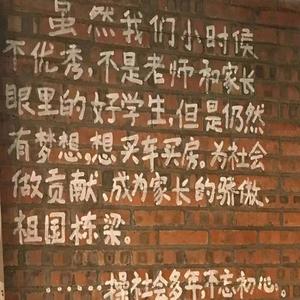 虽然我们小时候
不优秀,不是老师和家长
眼里的好学生,但是仍然
有梦想,想买车买房。为社会
做贡献、成为家长的骄傲、
祖国栋梁。
……操社会多年不忘初心。